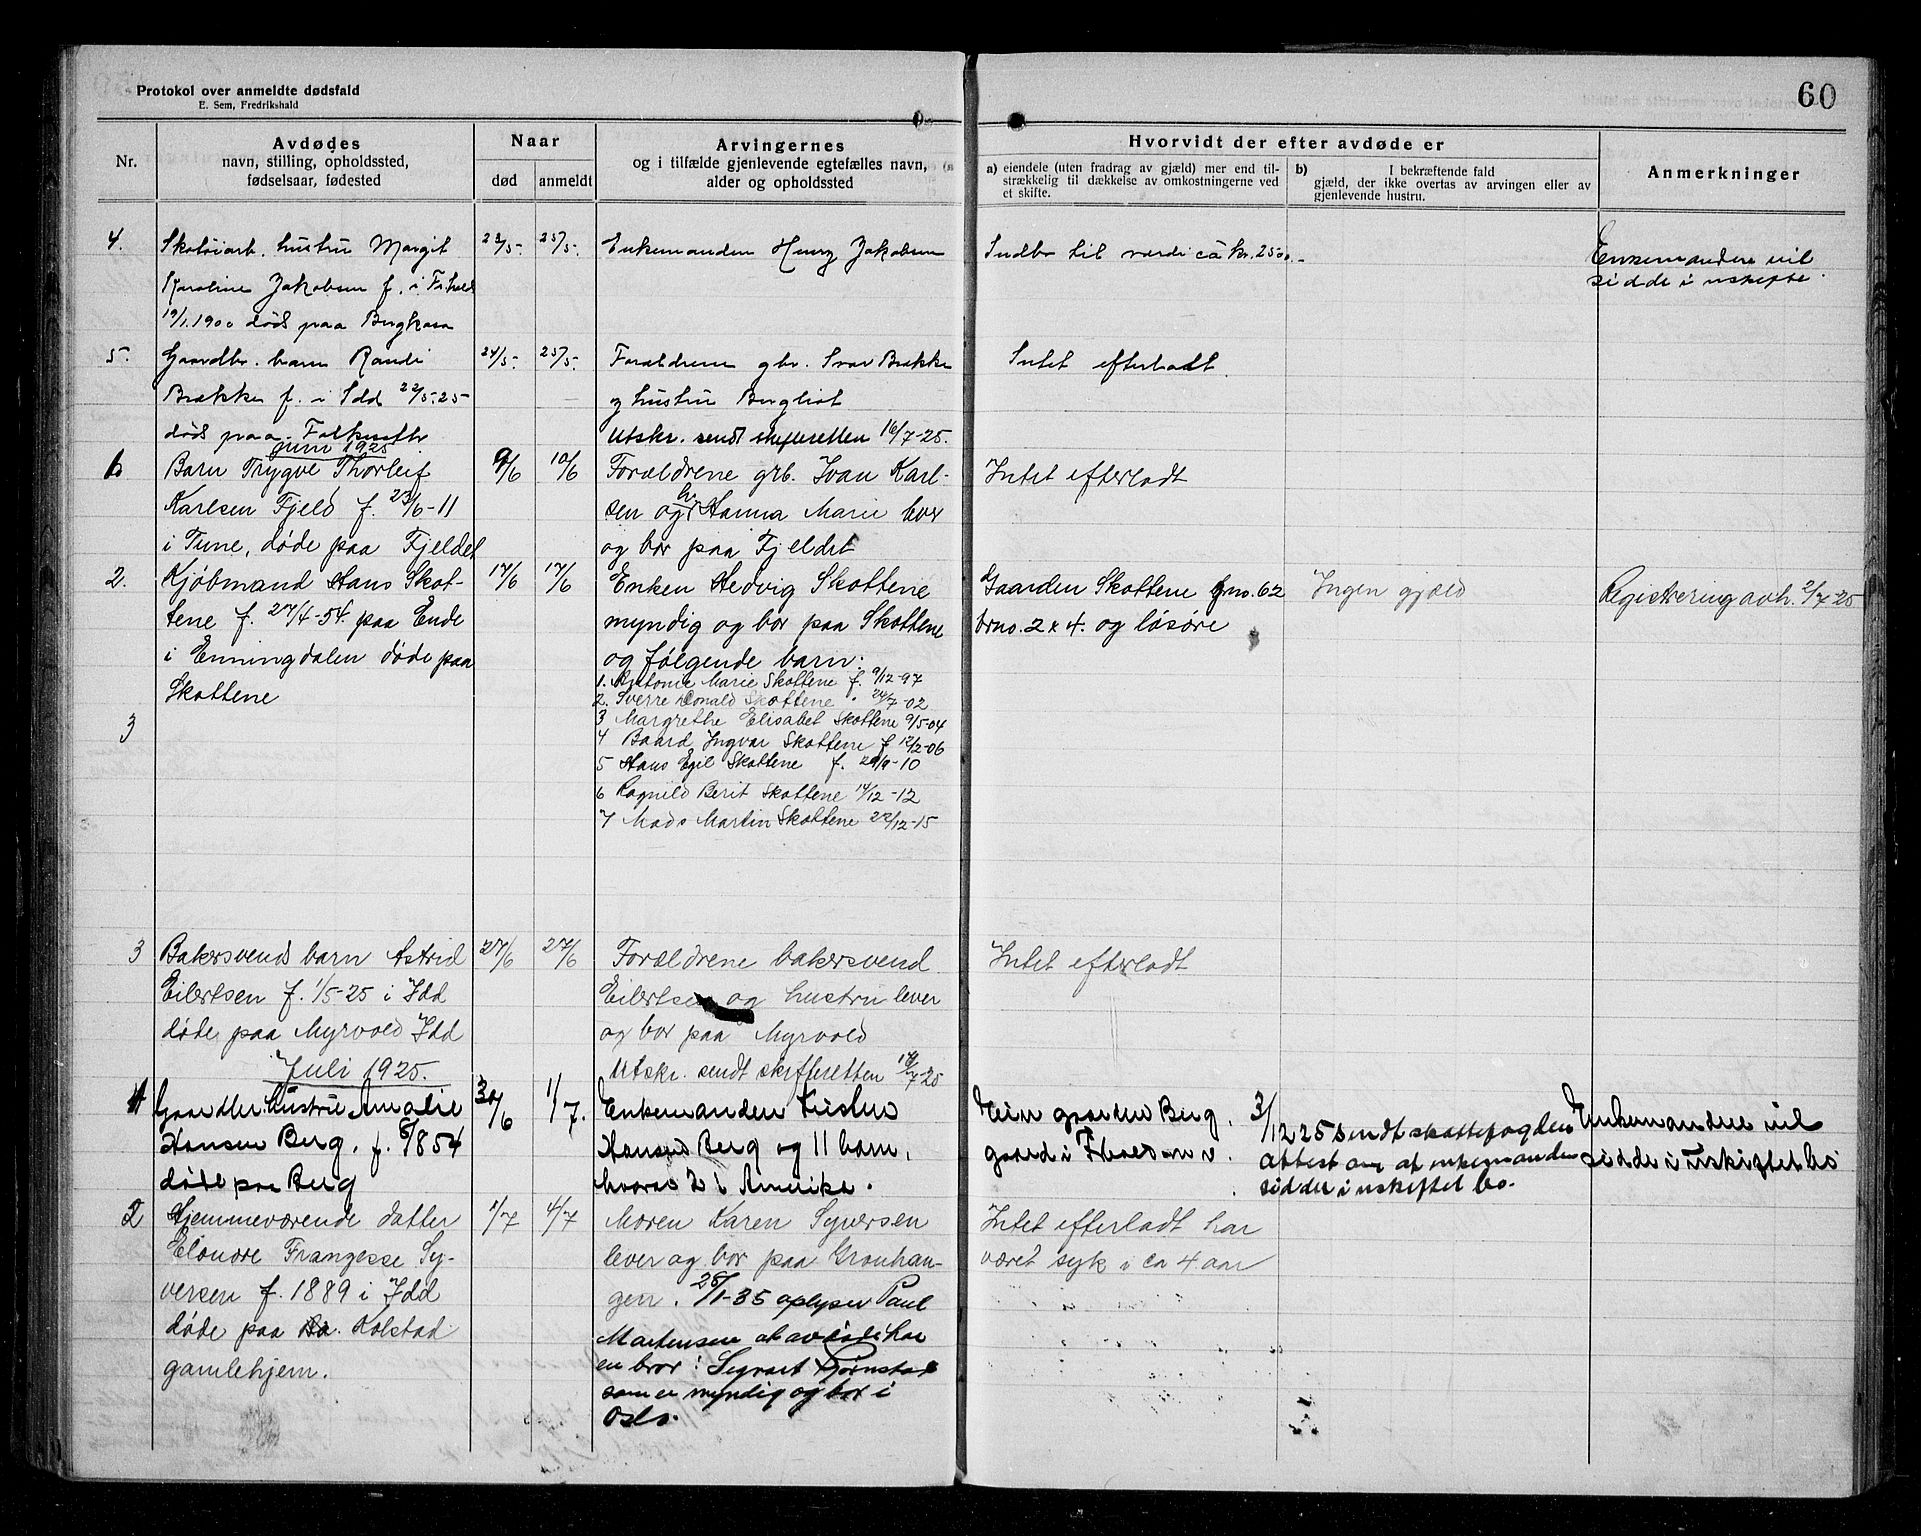 60
Protokol over anmeldte dødsfald
E. Sem, Fredrikshald
Nr.
Avdødes
navn, stilling, opholdssted,
fødselsaar, fødested
Naar
død
anmeldt
Arvingernes
og i tilfælde gjenlevende egtefælles navn,
alder og opholdssted
Hvorvidt der efter avdøde er
a) eiendele (uten fradrag av gjæld) mer end til-
strækkelig til dækkelse av omkostningerne ved
et skifte.
b) I bekræftende fald
gjæld, der ikke overtas av arvingen eller av
gjenlevende hustru.
Anmerkninger
4. Skotøiarb. hustru Margit 23/5- 25/5- Enkemanden Henry Jakobsen Indbo til værdi ca kr. 2500.- Enkemanden vil
Karoline Jakobsen f. i Fr.hald sidde i uskifte.
19/1.1900 død paa
5. Gaardbr. barn Randi 24/5- 25/5- Forældrene gbr. Brække Intet efterladt.
Brække f. i Idd 22/5-25 og hustru Bergliot
død paa Utskr. sendt skifteretten 16/7-25.
Juni 1925
Barn Trygve Thorleif 9/6 10/6 Forældrene grb. Ivan Karl- Intet efterladt
Karlsen Fjeld f. 23/6-11 sen og hr Hanna Marie lever
i Tune, døde paa Fjeldet og bor paa Fjeldet
2. Kjøbmand Hans Skot- 17/6 17/6 Enken Hedvig Skottene Gaarden Skottene gno. 62 Ingen gjæld Registrering avh. 2/7-25
tene f. 27/4-54. paa Ende myndig og bor paa Skottene brno. 2 x 4. og løsøre
i Enningdalen døde paa og følgende barn:
Skottene
1. Antonie Marie Skottene f. 9/12-97
2. Sverre Donald Skottene " 24/7-02
3 Margrethe Elisabet Skottene 9/5-04
4 Baard Ingvar Skottene f 12/2-06
5 Hans Egil Skottene f. -10
6 Ragnild Berit Skottene 14/12-12
7 Mads Martin Skottene 22/12-15
3
3 Bakersvends barn Astrid 27/6 27/6 Forældrene bakersvend Intet efterladt
Eilertsen f. 1/5-25 i Idd Eilertsen og hustru lever
døde paa Myrvold Idd og bor paa Myrvold
Utskr. sendt skifteretten /7-25
Juli 1925.
1 Gaardbr. hustru Amalie 30/6 1/7. Enkemanden Eier gaarden Berg 3/12 25 sendt skattefogden Enkemanden vil
Hansen Berg. f. 854 Hansen Berg og 11 barn, gaard i attest om at enkemanden sidde i uskiftet bo
døde paa Berg hvorav 2 i Amerika. sidder i uskiftet bo.
2 Hjemmeværende datter 1/7 4/7 Moren Karen Syversen Intet efterladt har
Elonore Frangesse Sy- lever og bor paa Gronhan- været syk i ca 4 aar
versen f. 1889 i Idd gen. 28/1-35 oplyser Paul
døde paa Kolstad Martensen at avdøde har
gamlehjem. en bror: Syvart
som er myndig og bor i
Oslo.